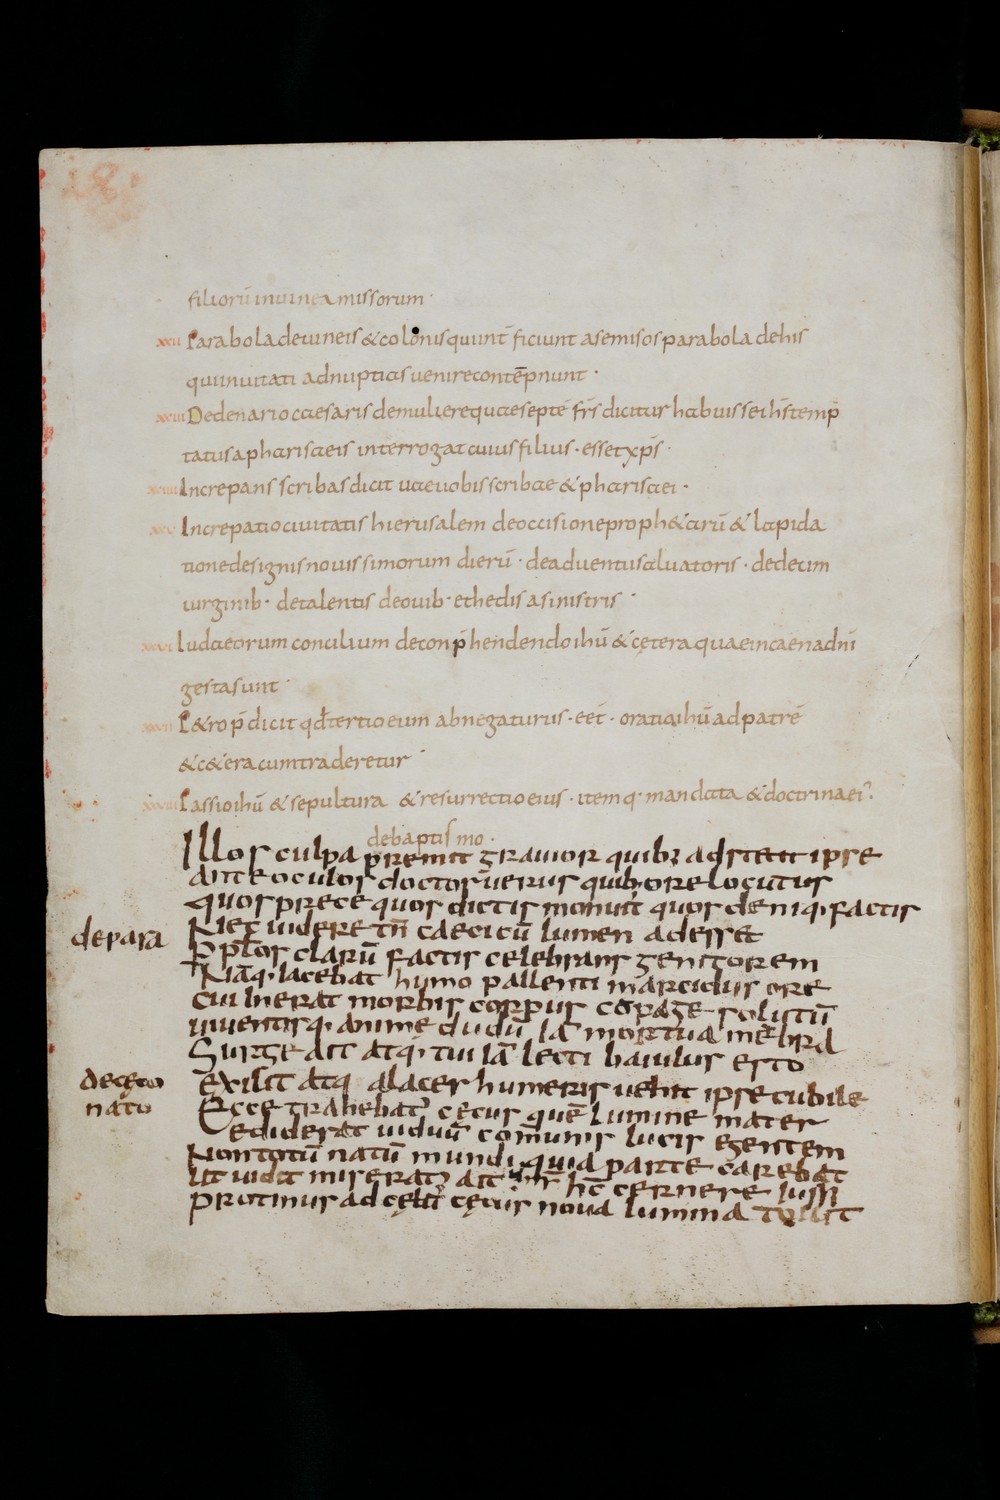 filiorū in uinea missorum ·
xxii Parabola de uineis & colonis qui int̄ficiunt a se missos parabola de his
qui inuitati ad nuptias uenire contēpnunt ·
xxiii De denario caesaris de muliere quae septē fr̄s dicitur habuisse ih̄s temp̄
tatus a pharisaeis interrogat cuius filius · esset xp̄s ·
xxiiii Increpans scribas dicit uae uobis scribae & pharisaei ·
xxv Increpatio ciuitatis hierusalem de occisione proph&arū & lapida
tione de signis nouissimorum dierū · de aduentu saluatoris · de decim
uirginib · de talentis de ouib · et hedis a sinistris ·
xxvi Iudaeorum concilium de conp̄hendendo ihū & cętera quae in caena dn̄i
gesta sunt ·
xxvii P&ro p̄dicit qd̄ tertio eum abnegaturus · eēt · oratio ihū ad patrē
& c&era cum traderetur ·
xxviii Passio ihū & sepultura & resurrectio eius · itemq · mandata & doctrina ei' ·
de baptismo ·
Illos culpa premit grauior quib; adstetit ipse
Ante oculos doctor uerus quib; ore locutus
quos prece quos dictis monuit quos deniq · factis
Nec uidere tn̄ caeci cū lumen adesset
de para
P p̄tos clarū factis celebrans genitorem
Nāq · iacebat humo pallenti marcidus ore
Cui inerat morbis corpus cōpage solutū
uiuentisq · anime dudū iā mortua mēbra
Surge ait atq · tui iā lecti baiulus esto
Exilit atq alacer humeris uehit ipse cubile
de cęco
nato
Ecce trahebat' cęcus quē lumine mater
Ediderat uiduū communis lucis egentem
Non totū natū mundi quia parte carebat
Ut uidit miserat' ait hc̄ cernere iussi
protinus ad cęlū cęcus noua lumina tollit